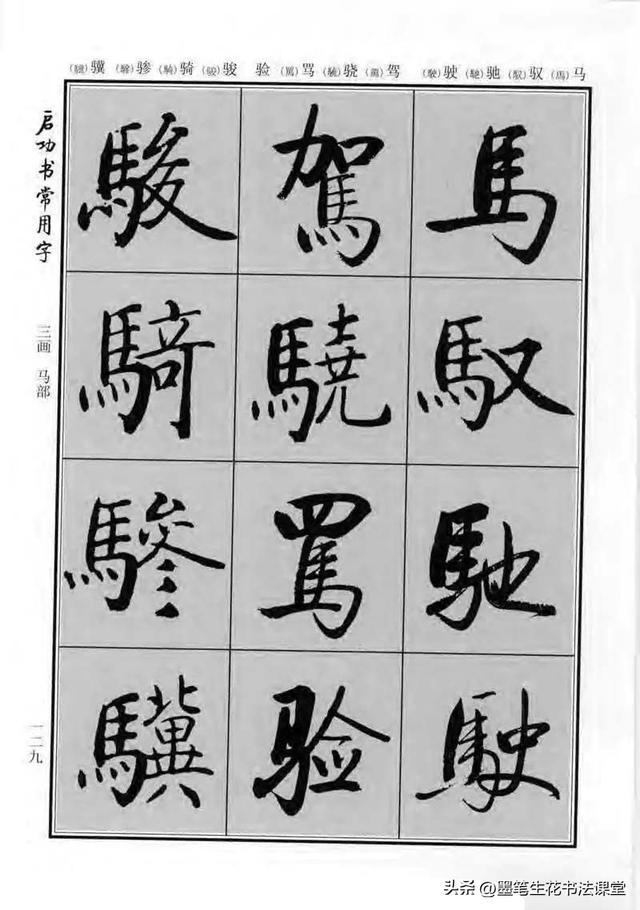 马(馬) 驭(馭) 驰(馳) 驶(駛) 驾(駕) 骁(驍) 骂(罵) 验 骏(駿) 骑(騎) 骖(驂) 骥(驥)
馬馭馳駛
駕驍罵验
駿騎驂驥
启功书常用字
三画 马部
一二九
头条 @墨笔生花书法课堂